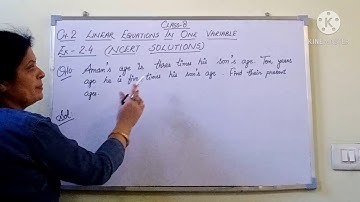 CLASS-8
Ch.2 LINEAR EQUATIONS IN ONE VARIABLE
Ex-2.4 (NCERT SOLUTIONS)
Q10 Aman's age is three times his son's age. Ten years
ago he is five times his son's age. Find their present
ages.
Sol
KINEMASTER